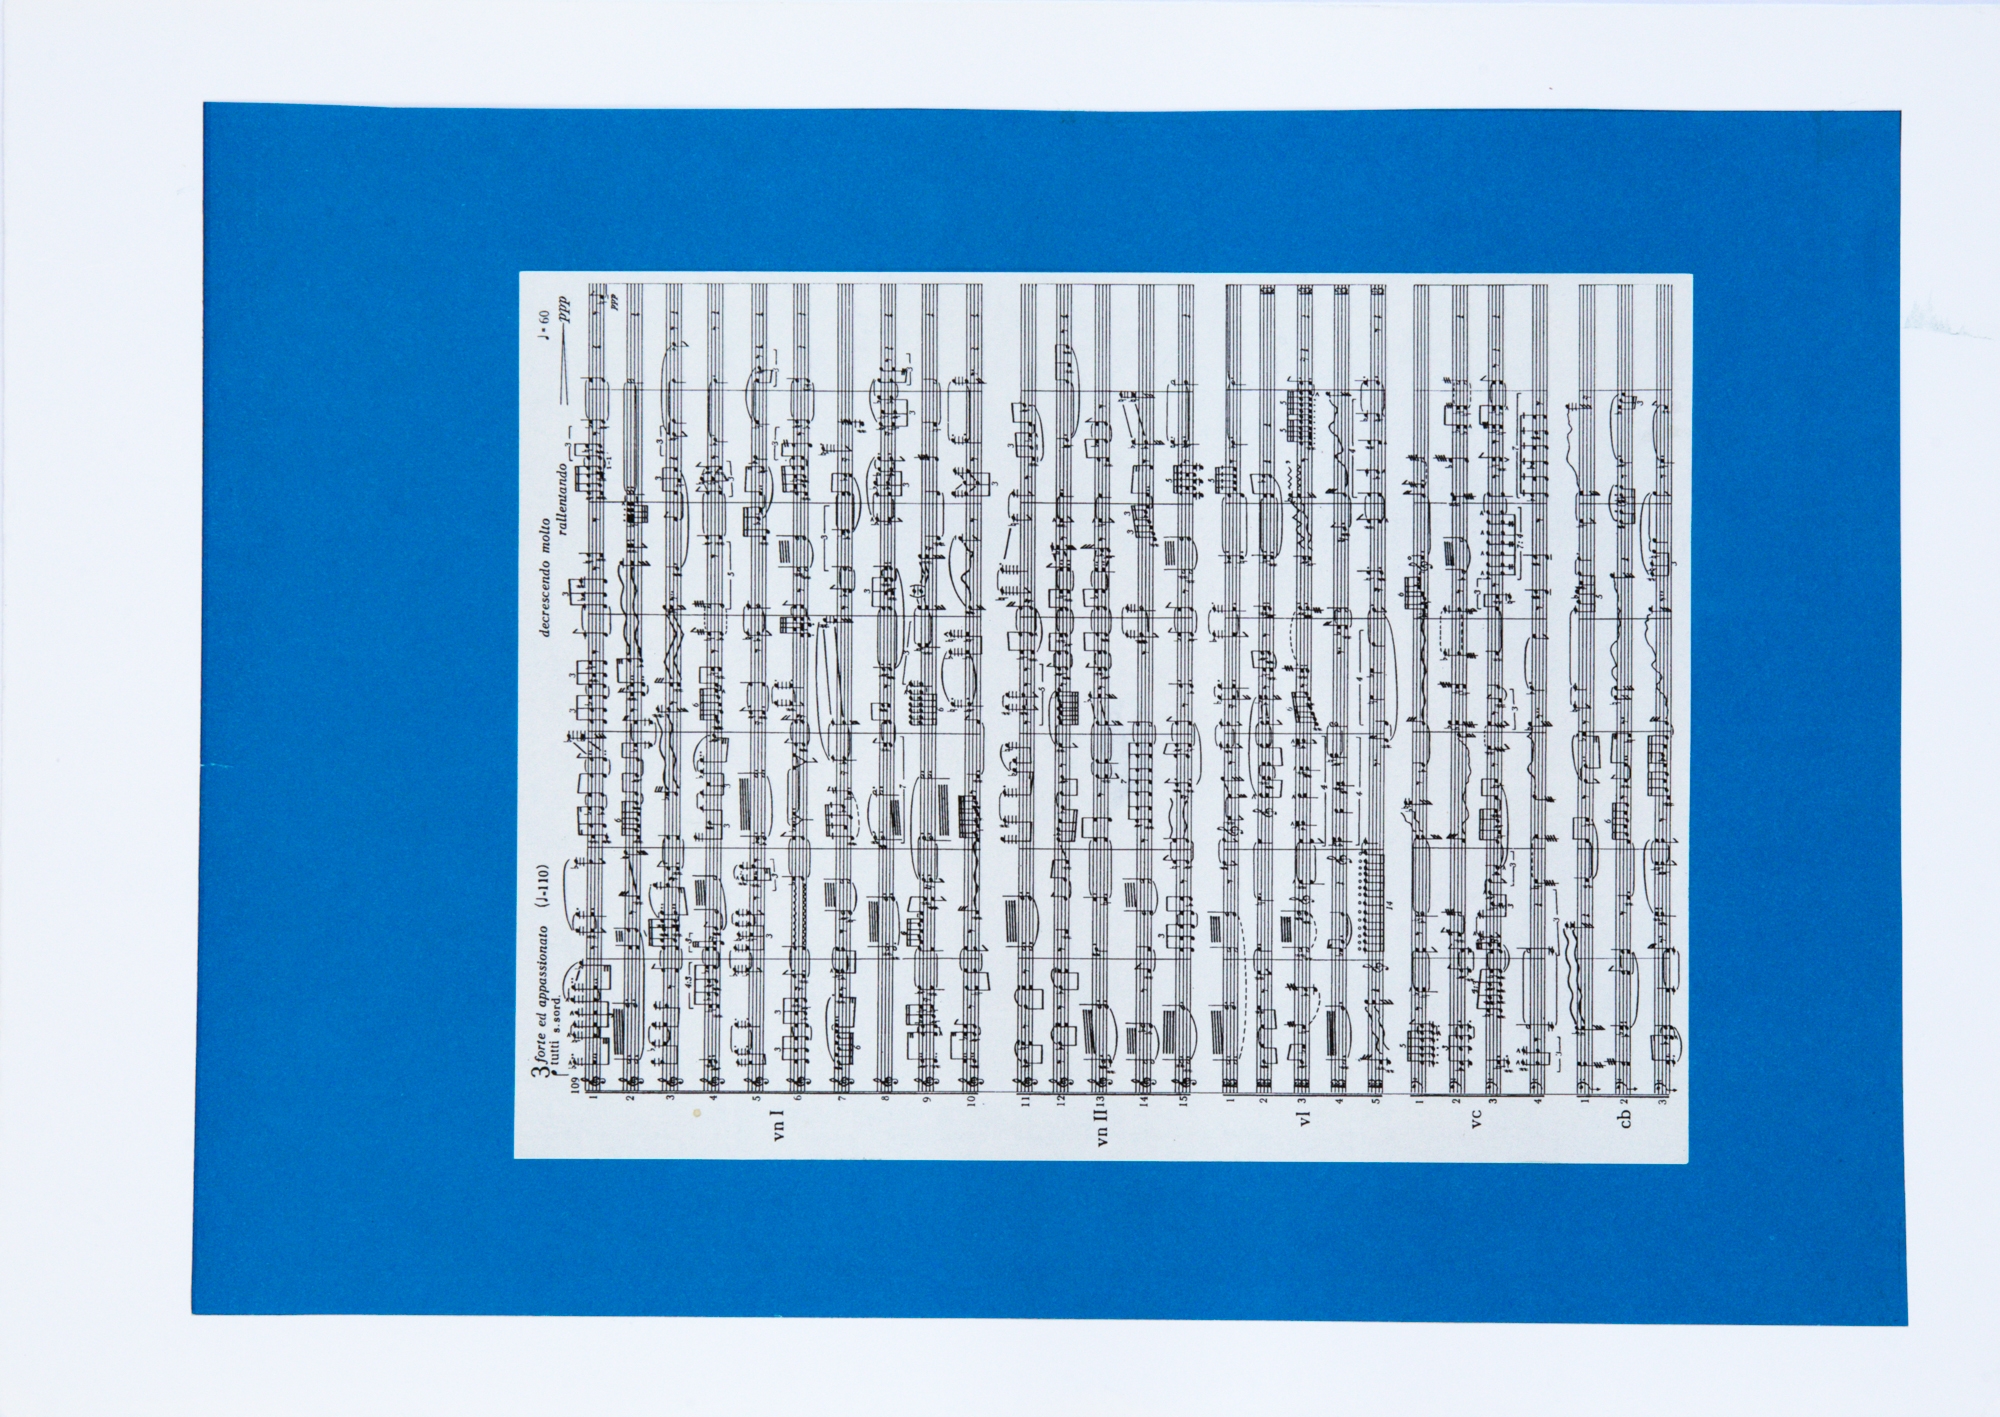 decrescendo molto
3 forte ed appassionato (♩=110) rallentando ♩=60
tutti s. sord. ppp
109
1
ppp
2
3
4
vn I 5
6
7
8
9
10
11
12
vn II 13
14
15
1
2
vl 3
4
5
1
2
vc 3
4
1
cb 2
3